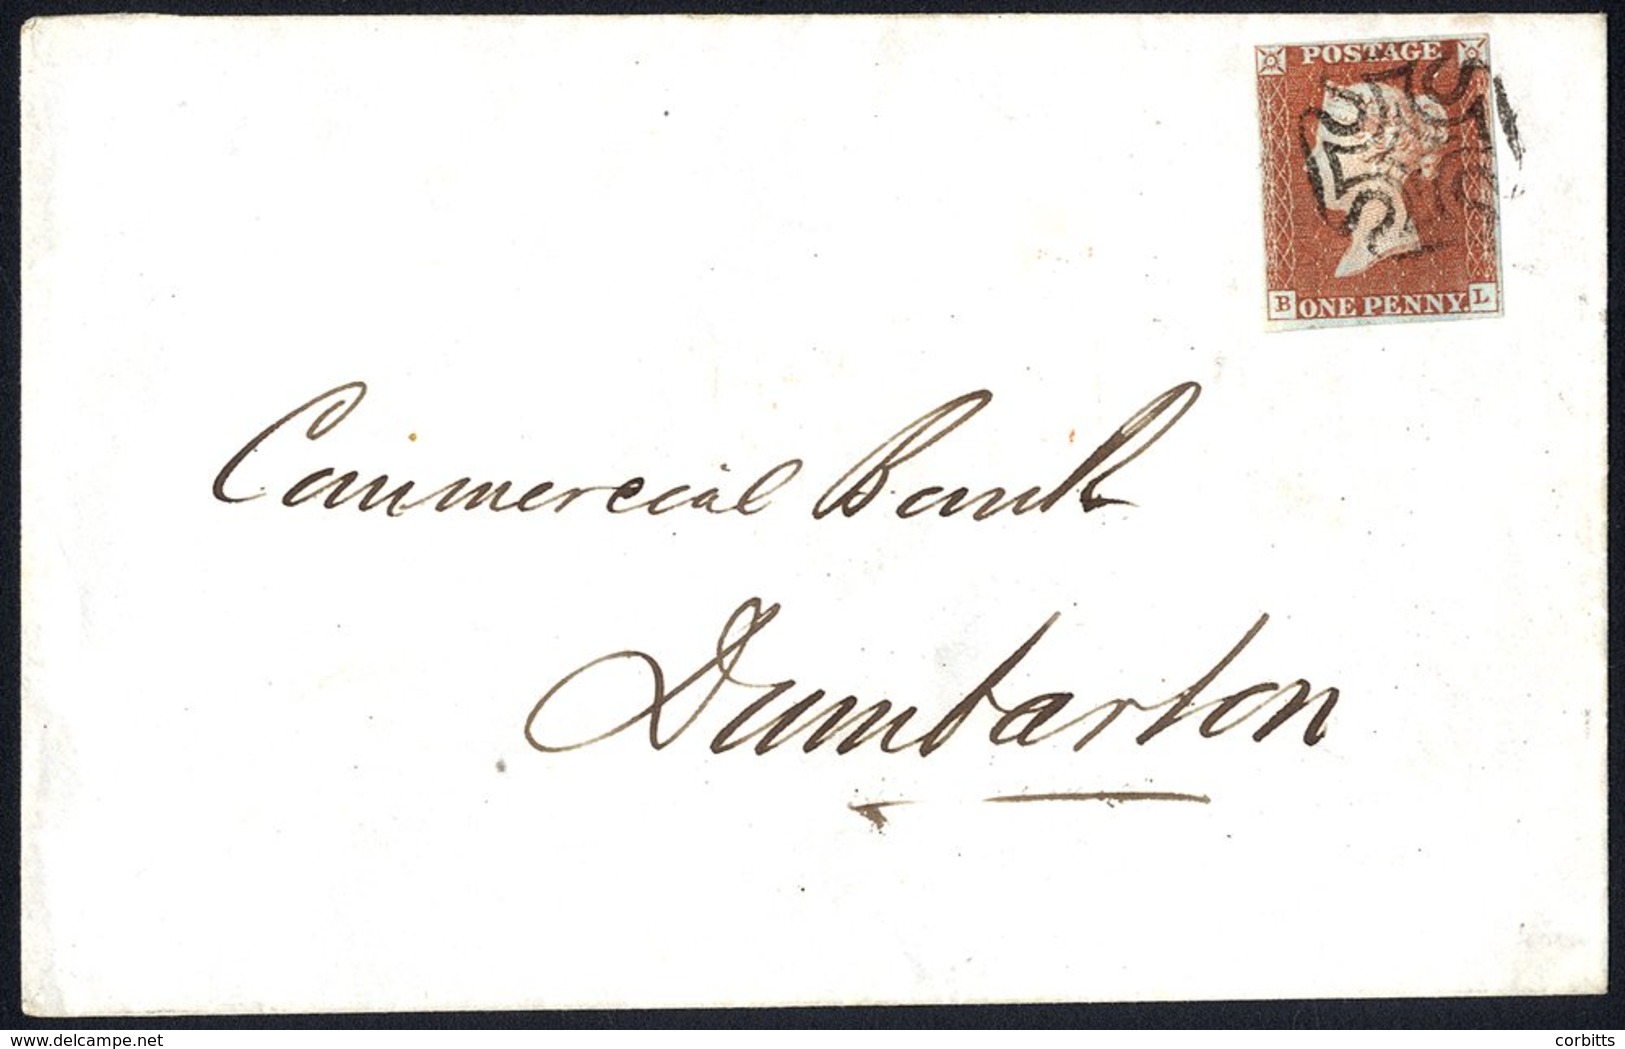 POSTAGE
B ONE PENNY. L
Commercial Bank
Dumbarton
delcampe.net
corbitts